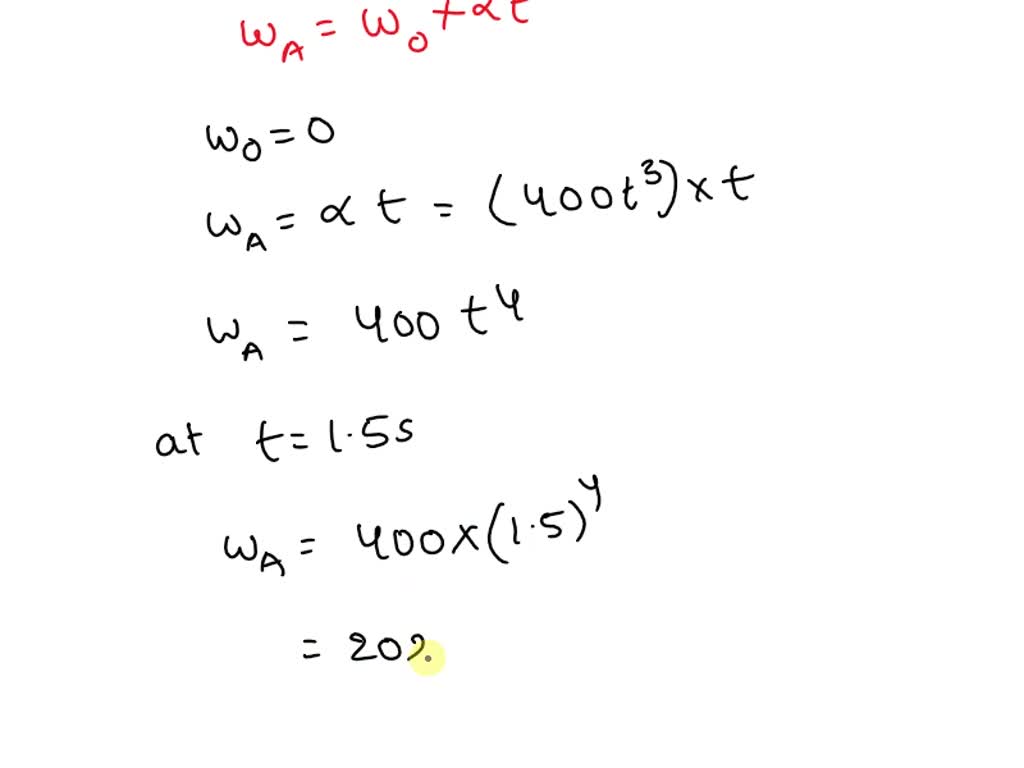 ω_A = ω_0 + αt
ω_0 = 0
ω_A = αt = (400t³) × t
ω_A = 400 t⁴
at t = 1.5s
ω_A = 400 × (1.5)⁴
= 202